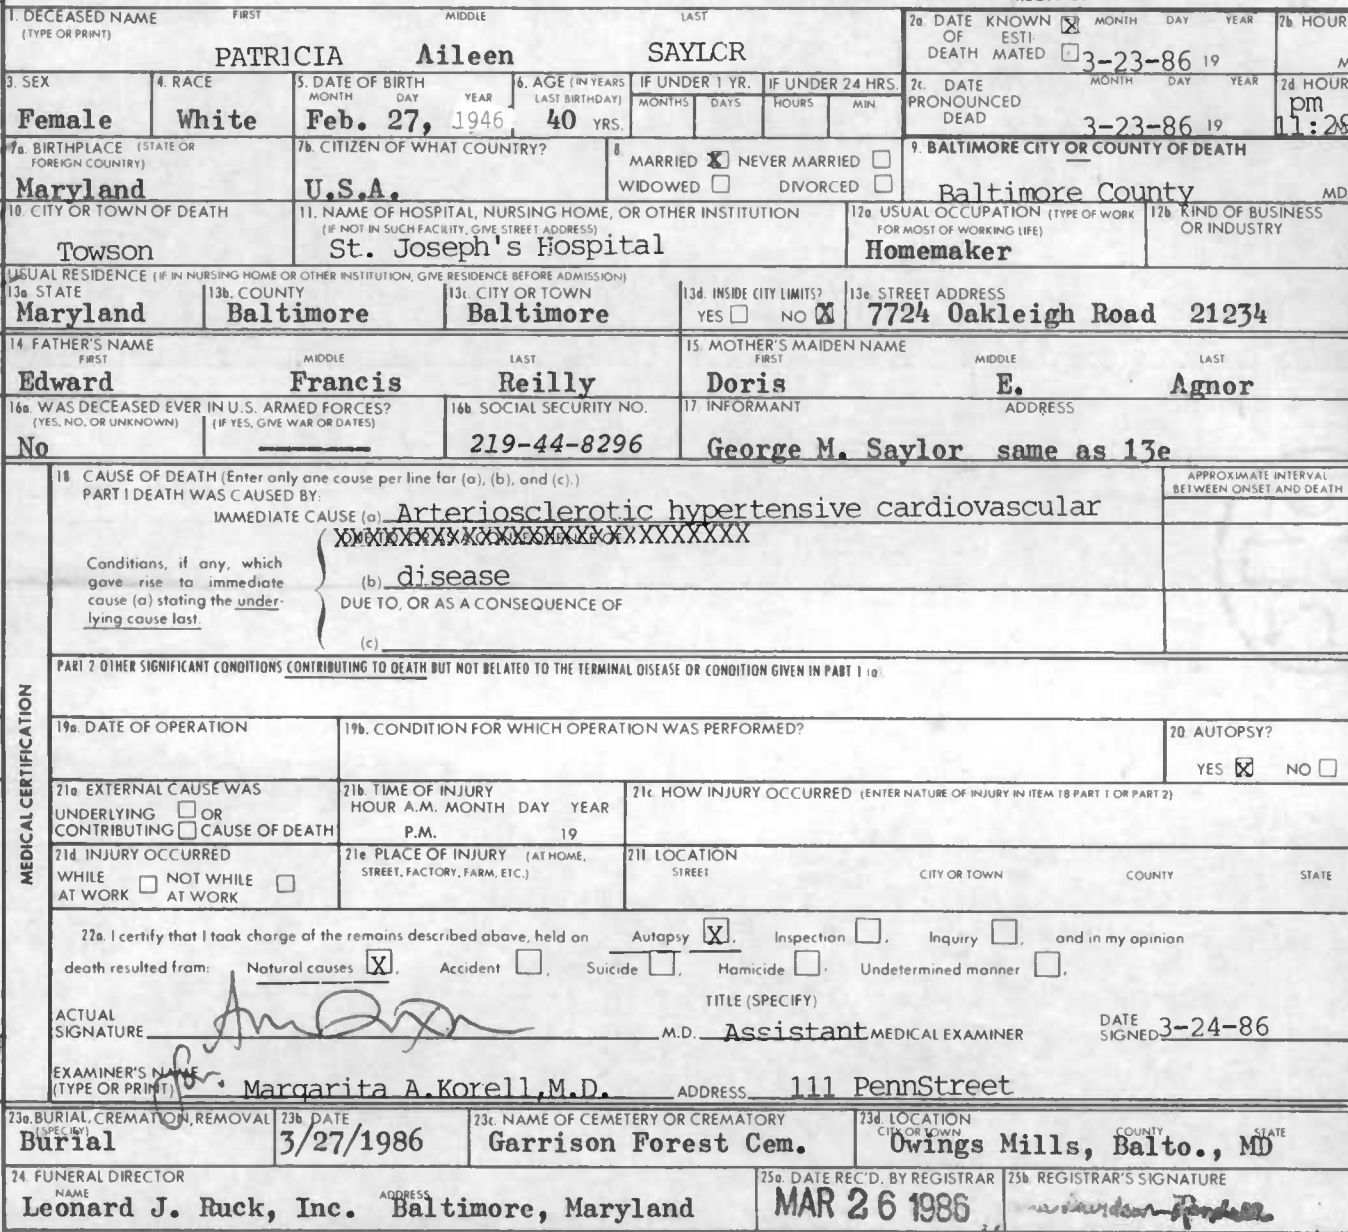 1. DECEASED NAME FIRST MIDDLE LAST
(TYPE OR PRINT)
PATRICIA Aileen SAYLOR
2a DATE KNOWN X MONTH DAY YEAR 2b. HOUR
OF ESTI-
DEATH MATED 3-23-86 19 M
3. SEX
Female
4. RACE
White
5. DATE OF BIRTH
MONTH DAY YEAR
Feb. 27, 1946
6. AGE (IN YEARS
LAST BIRTHDAY)
40 YRS.
IF UNDER 1 YR.
MONTHS DAYS
IF UNDER 24 HRS.
HOURS MIN
2c. DATE MONTH DAY YEAR
PRONOUNCED
DEAD 3-23-86 19
2d HOUR
pm
11:28
7a. BIRTHPLACE (STATE OR
FOREIGN COUNTRY)
Maryland
7b. CITIZEN OF WHAT COUNTRY?
U.S.A.
8
MARRIED X NEVER MARRIED
WIDOWED DIVORCED
9. BALTIMORE CITY OR COUNTY OF DEATH
Baltimore County MD
10. CITY OR TOWN OF DEATH
Towson
11. NAME OF HOSPITAL, NURSING HOME, OR OTHER INSTITUTION
(IF NOT IN SUCH FACILITY, GIVE STREET ADDRESS)
St. Joseph's Hospital
12a USUAL OCCUPATION (TYPE OF WORK
FOR MOST OF WORKING LIFE)
Homemaker
12b. KIND OF BUSINESS
OR INDUSTRY
USUAL RESIDENCE (IF IN NURSING HOME OR OTHER INSTITUTION, GIVE RESIDENCE BEFORE ADMISSION)
13a. STATE
Maryland
13b. COUNTY
Baltimore
13c. CITY OR TOWN
Baltimore
13d. INSIDE CITY LIMITS?
YES NO X
13e. STREET ADDRESS
7724 Oakleigh Road 21234
14. FATHER'S NAME
FIRST MIDDLE LAST
Edward Francis Reilly
15. MOTHER'S MAIDEN NAME
FIRST MIDDLE LAST
Doris E. Agnor
16a. WAS DECEASED EVER IN U.S. ARMED FORCES?
(YES, NO, OR UNKNOWN) (IF YES, GIVE WAR OR DATES)
No
16b SOCIAL SECURITY NO.
219-44-8296
17 INFORMANT ADDRESS
George M. Saylor same as 13e
MEDICAL CERTIFICATION
18 CAUSE OF DEATH (Enter only one cause per line for (a), (b), and (c).)
PART I DEATH WAS CAUSED BY:
IMMEDIATE CAUSE (a) Arteriosclerotic hypertensive cardiovascular
APPROXIMATE INTERVAL
BETWEEN ONSET AND DEATH
Conditions, if any, which
gave rise to immediate
cause (a) stating the under-
lying cause last.
(b) disease
DUE TO, OR AS A CONSEQUENCE OF
(c)
PART 2 OTHER SIGNIFICANT CONDITIONS CONTRIBUTING TO DEATH BUT NOT RELATED TO THE TERMINAL DISEASE OR CONDITION GIVEN IN PART 1 (a)
19a. DATE OF OPERATION
19b. CONDITION FOR WHICH OPERATION WAS PERFORMED?
20 AUTOPSY?
YES X NO
21a EXTERNAL CAUSE WAS
UNDERLYING OR
CONTRIBUTING CAUSE OF DEATH
21b. TIME OF INJURY
HOUR A.M. MONTH DAY YEAR
P.M. 19
21c. HOW INJURY OCCURRED (ENTER NATURE OF INJURY IN ITEM 18 PART 1 OR PART 2)
21d. INJURY OCCURRED
WHILE NOT WHILE
AT WORK AT WORK
21e PLACE OF INJURY (AT HOME,
STREET, FACTORY, FARM, ETC.)
21f. LOCATION
STREET CITY OR TOWN COUNTY STATE
22a. I certify that I took charge of the remains described above, held on Autopsy X, Inspection, Inquiry, and in my opinion
death resulted from: Natural causes X, Accident, Suicide, Homicide, Undetermined manner,
ACTUAL TITLE (SPECIFY)
SIGNATURE M.D. Assistant MEDICAL EXAMINER DATE SIGNED 3-24-86
for.
EXAMINER'S NAME
(TYPE OR PRINT) Margarita A.Korell,M.D. ADDRESS 111 PennStreet
23a. BURIAL, CREMATION, REMOVAL
(SPECIFY)
Burial
23b DATE
3/27/1986
23c. NAME OF CEMETERY OR CREMATORY
Garrison Forest Cem.
23d. LOCATION
CITY OR TOWN COUNTY STATE
Owings Mills, Balto., MD
24. FUNERAL DIRECTOR
NAME ADDRESS
Leonard J. Ruck, Inc. Baltimore, Maryland
25a. DATE REC'D. BY REGISTRAR
MAR 26 1986
25b. REGISTRAR'S SIGNATURE